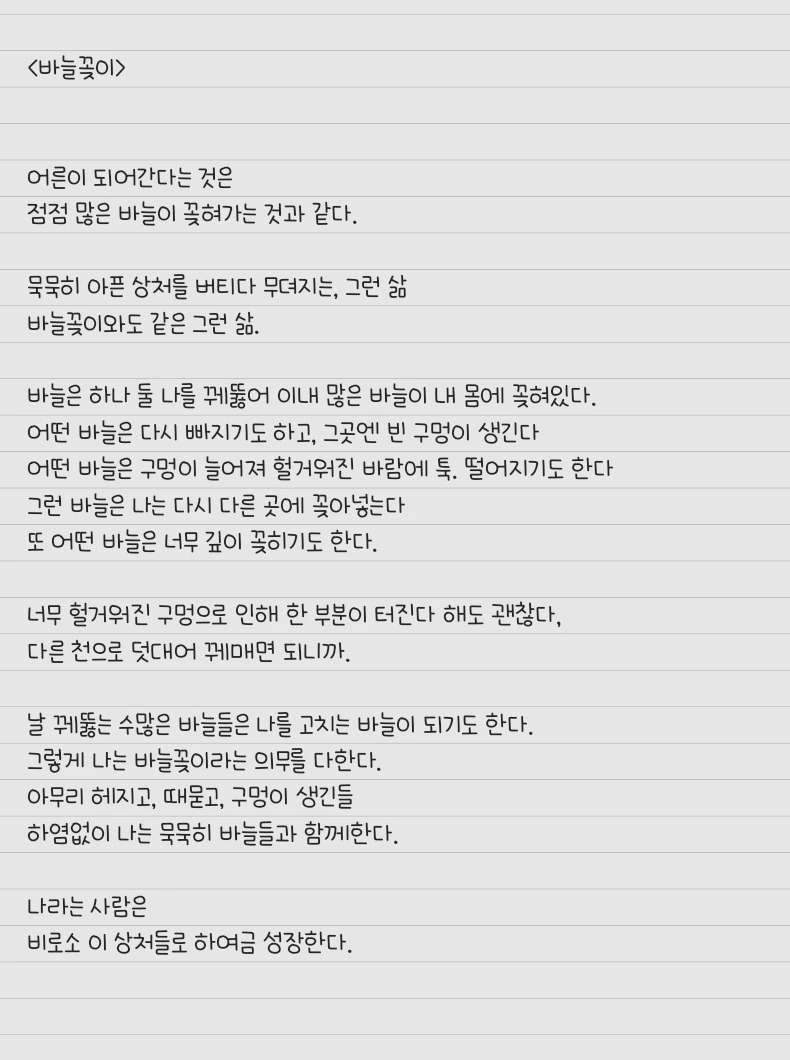 <바늘꽂이>
어른이 되어간다는 것은
점점 많은 바늘이 꽂혀가는 것과 같다.
묵묵히 아픈 상처를 버티다 무뎌지는, 그런 삶
바늘꽂이와도 같은 그런 삶.
바늘은 하나 둘 나를 꿰뚫어 이내 많은 바늘이 내 몸에 꽂혀있다.
어떤 바늘은 다시 빠지기도 하고, 그곳엔 빈 구멍이 생긴다
어떤 바늘은 구멍이 늘어져 헐거워진 바람에 툭. 떨어지기도 한다
그런 바늘은 나는 다시 다른 곳에 꽂아넣는다
또 어떤 바늘은 너무 깊이 꽂히기도 한다.
너무 헐거워진 구멍으로 인해 한 부분이 터진다 해도 괜찮다,
다른 천으로 덧대어 꿰매면 되니까.
날 꿰뚫는 수많은 바늘들은 나를 고치는 바늘이 되기도 한다.
그렇게 나는 바늘꽂이라는 의무를 다한다.
아무리 헤지고, 때묻고, 구멍이 생긴들
하염없이 나는 묵묵히 바늘들과 함께한다.
나라는 사람은
비로소 이 상처들로 하여금 성장한다.